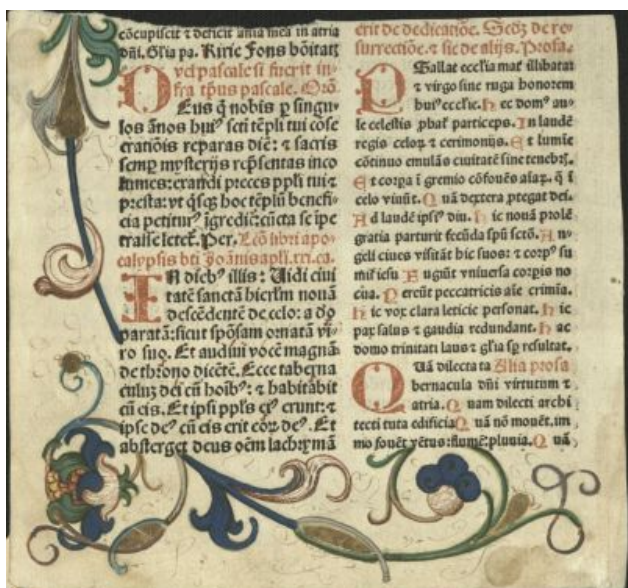 cōcupiscit ⁊ deficit aīa mea in atria
dn̄i. Gl̄ia pa. Kirie Fons bōitat{
vel pascale si fuerit in-
fra tp̄us pascale. Orō.
Deus q̄ nobis ꝑ singu-
los ānos huiꝰ sc̄ti tēpli tui cōse
crationis reparas diē: ⁊ sacris
semꝑ mysterijs rep̄sentas inco
lumes: exaudi preces pp̄li tui ⁊
presta: vt q̄sq̄s hoc tēplū benefi-
cia petiturꝰ īgredit̄: cūcta se īpe
trasse letet̄. Per. Lcō libri apo-
calypsis bt̄i Joānis apl̄i. xxi. ca.
IN diebꝰ illis: Uidi ciui
tatē sanctā hierl̄m nouā
descēdentē de celo: a dō
paratā: sicut spōsam ornatā vi-
ro suo. Et audiui vocē magnā
de throno dicētē. Ecce taberna
culuȝ dei cū hoībꝰ: ⁊ habitabit
cū eis. Et ipsi ppl̄s eiꝰ erunt: ⁊
ipse deꝰ cū eis erit eoꝝ deꝰ. Et
absterget deus oēm lachrymā
erit de dedicatiōe. Sedȝ de re-
surrectiōe. ⁊ sic de alijs. Prosa.
PSallat eccl̄ia mat̄ illibata
⁊ virgo sine ruga honorem
huiꝰ eccl̄ie. Hec domꝰ au-
le celestis ꝓbat̄ particeps. In laudē
regis celoꝝ ⁊ cerimonijs. Et lumīe
cōtinuo emulās ciuitatē sine tenebrꝭ.
Et corpa ī gremio cōfouēs aīaꝝ. q̄ ī
celo viuūt. Quā dextera ꝓtegat dei.
Ad laudē ipsiꝰ diu. Hic nouā prolē
gratia parturit fecūda spū sctō. An-
geli ciues visitāt hic suos: ⁊ corpꝰ su
mit̄ iesu. Fugiūt vniuersa corpis no
cua. Pereūt peccatricis aīe crimīa.
Hic vox clara leticie personat. Hic
pax salus ⁊ gaudia redundant. Hac
domo trinitati laus ⁊ gl̄ia sꝑ resultat.
QUā dilecta ta Alia prosa
bernacula dn̄i virtutum ⁊
atria. Quam dilecti archi
tecti tuta edificia. Quā nō mouēt. im
mo fouēt vētus: flumē: pluuia. Quā